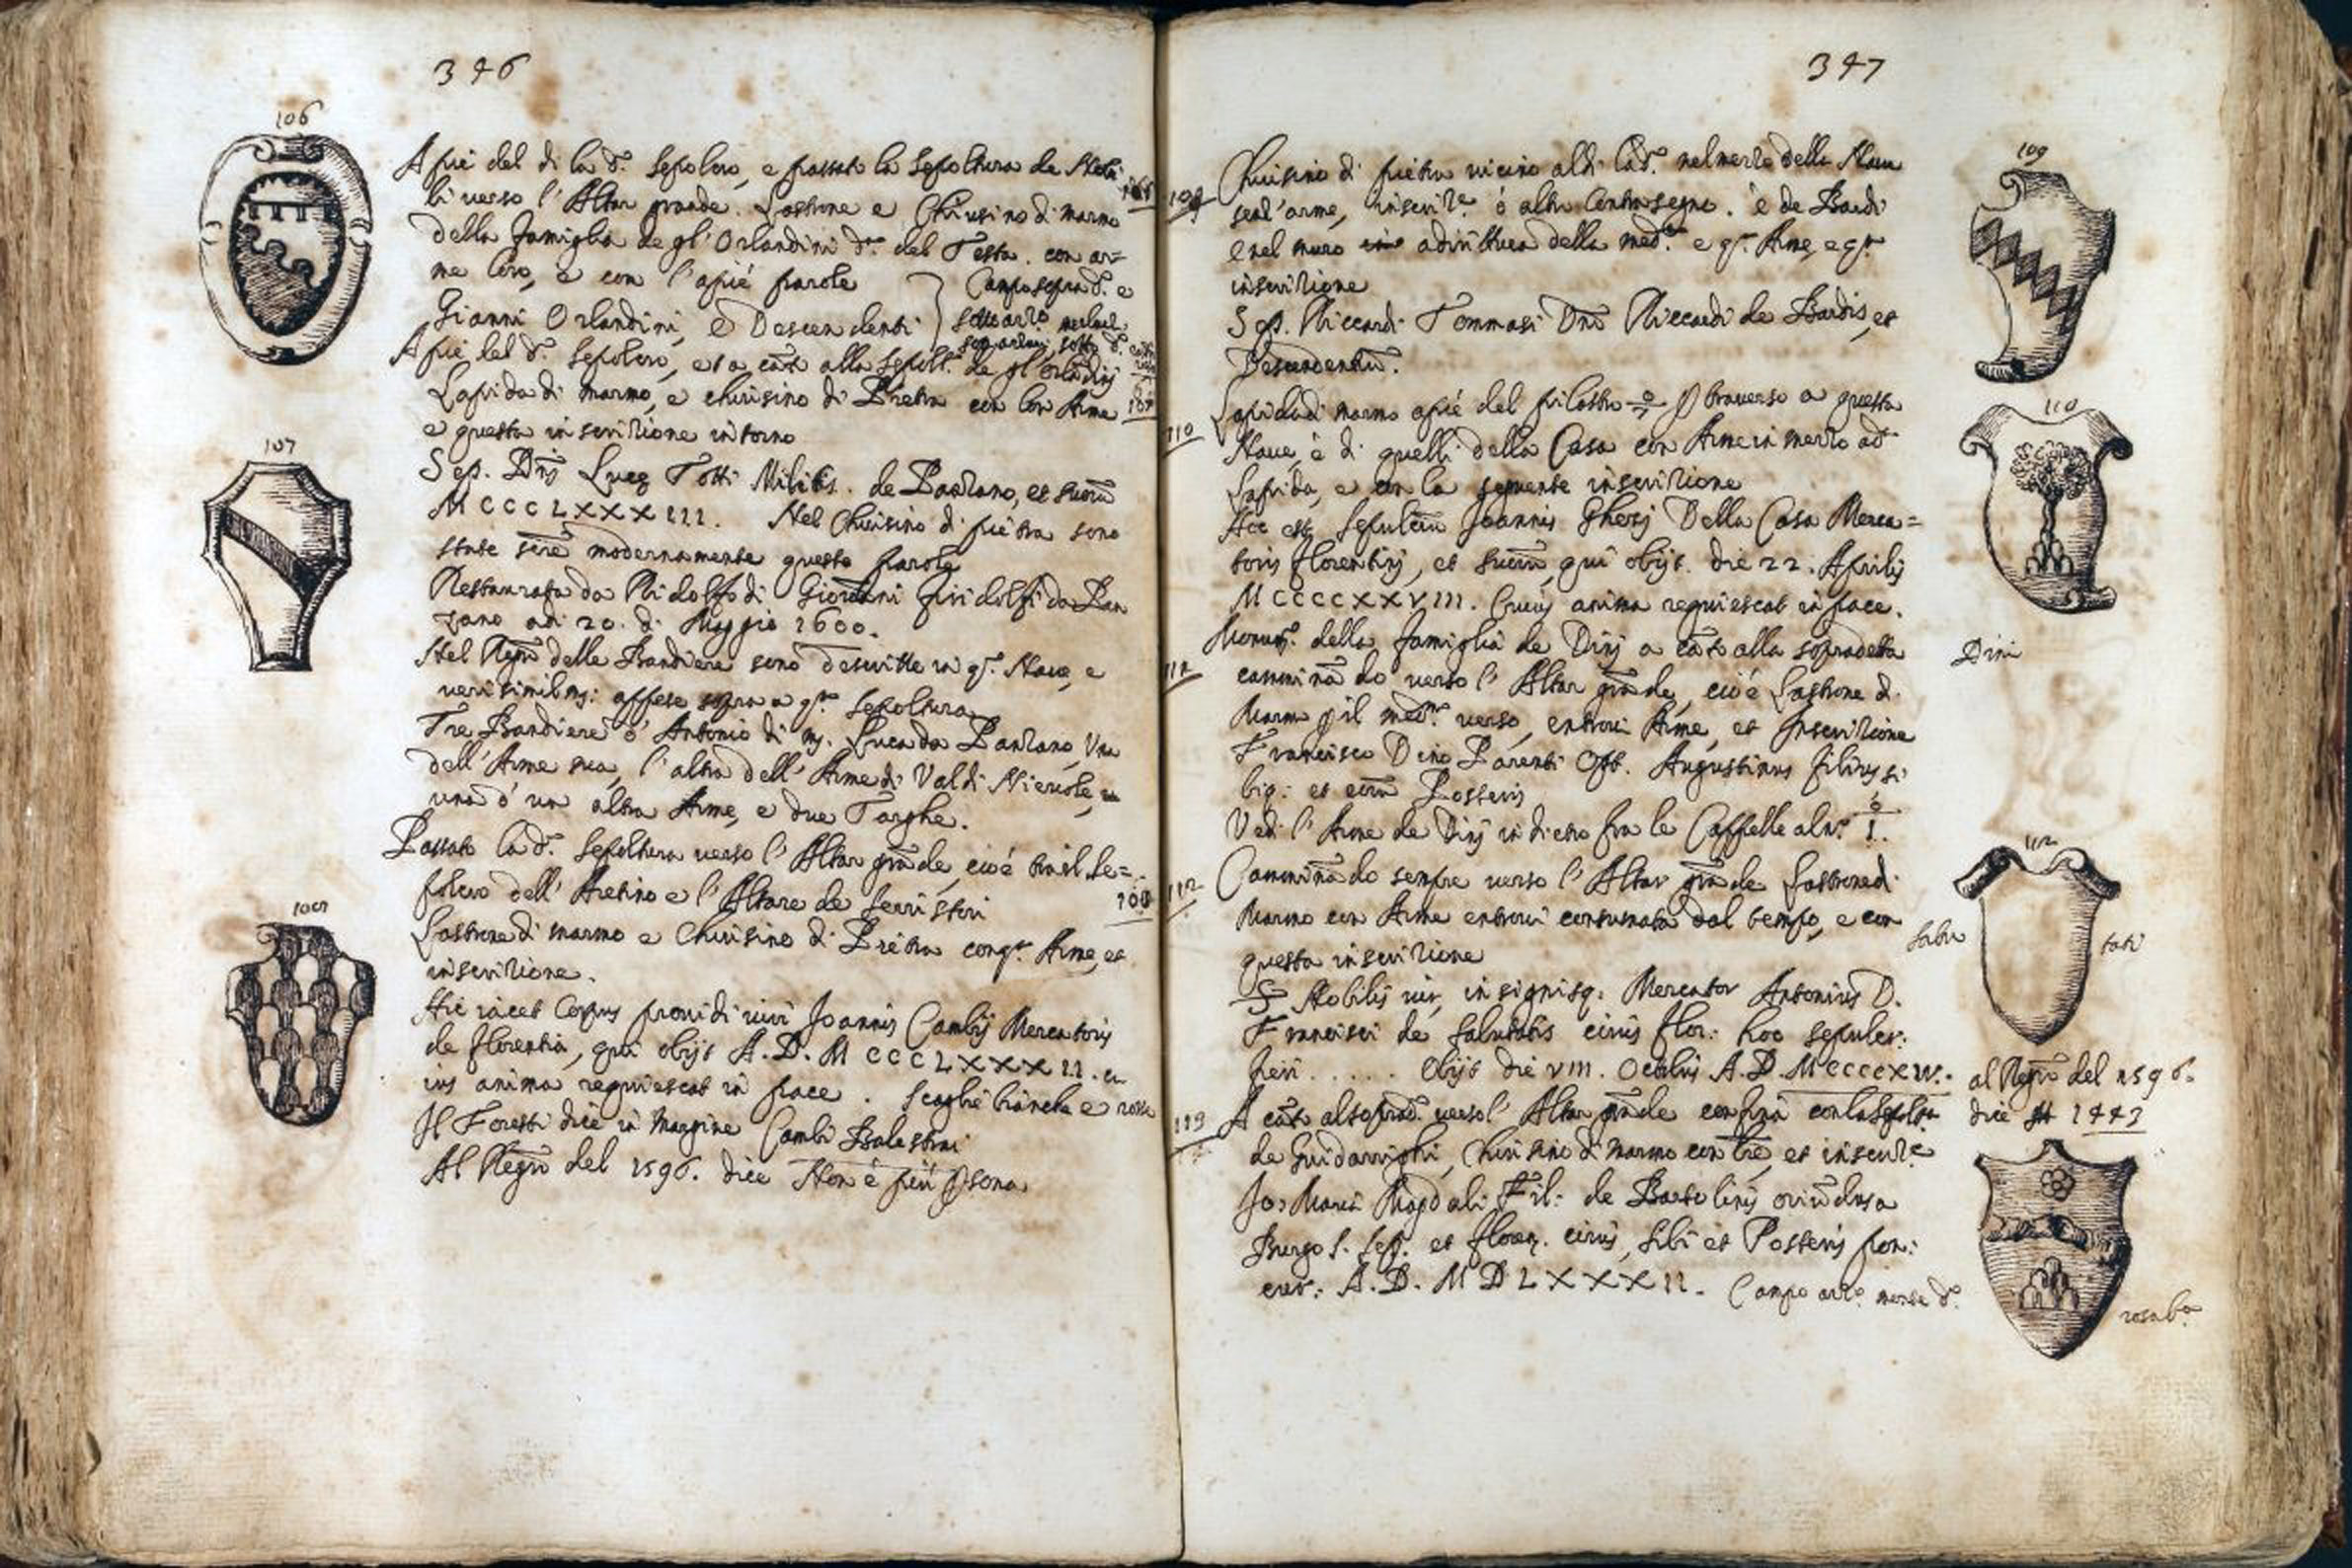 346
106
A piè del di la d.º Sepolcro, e passato la Sepoltura de
li verso l'Altar grande. Lastrone e Chiusino di marmo
della famiglia de gl'Orlandini d.ⁱ del Testa. con ar=
me loro, e con l'apiè parole
Gianni Orlandini, e Descendenti
Campo sopra d.º e
sotto azz.º
A piè del d.º Sepolcro, et a cāto alla Sepolt.ª de gl'Orlādinj
Lapida di marmo, e chiusino di Pietra con lor Arme
107
e questa inscrizione intorno
107
Sep. Dn̄j Lucę Totti Militis. de Panzano, et suorū
MCCCLXXXIII. Nel Chiusino di pietra sono
state modernamente queste parole
Restaurata da Ridolfo di Giovāni firidolfi da Pan
zano adi 20. di Maggio 1600.
Nel Regrō delle Bandiere sono descritte in q.ª Nave, e
verisimilm̄: appese sopra a q.ª sepoltura
Tre Bandiere d' Antonio di m̄. Luca da Panzano, Una
dell'Arme sua, l'altra dell'Arme di Valdi Nievole,
una d'un altra Arme, e due Targhe.
Passato la d.ª Sepoltura verso l'Altar grāde, cioè tra il Se=
polcro dell'Aretino e l'Altare de Serristori
108
108
Lastrone di marmo e Chiusino di Pietra con q.ª Arme, et
inscrizione.
Hic iacet Corpus providi viri Joannis Cambij Mercatoris
de Florentia, qui obijt A.D. MCCCLXXXII. cu
ius anima requiescat in pace. Scaglie bianche e rosse
Il Foresti dice in margine Cambi Balestrai
Al Regrō del 1596. dice Non è più psona
347
109
109
Chiusino di pietra vicino al di la d.º nel mezzo della Nave
senz'arme, inscriz.ᵉ ò altro Contrasegno. è de Bardi
e nel muro adirittura della med.ª e q.ª Arme, e q.ª
inscrizione
Sep. Riccardi Tommasi Dnī Riccardi de Bardis, et
Descendentiū.
110
110
Lapida di marmo apiè del pilastro p traverso a questa
Nave, è di quelli della Casa con Arme in mezzo ad
Lapida, e con la seguente inscrizione
Hoc est Sepulcrū Joannis Gherij Della Casa Merca=
toris florentinj, et suorū, qui obijt. die 22. Aprilis
MCCCCXXVIII. Cuius anima requiescat in pace.
Monum.º della famiglia de Dinj a cāto alla sopradetta
Dini
111
camminādo verso l'Altar grāde, cioè Lastrone di
Marmo p il med.º verso, entrovi Arme, et Inscrizione
Francisco Dino Parenti Opt. Augustinus filius si
biq: et eorū Posteris
Vedi l'Arme de Dinj in dietro fra le Cappelle al n.º 1.
112
112
Camminādo sempre verso l'Altar grāde Lastrone di
Marmo con Arme entrovi consumata dal tempo, e con
Salu
tati
questa inscrizione
S Nobilis vir, insignisq. Mercator Antonius D.
Francisci de Salutatis civis flor: hoc sepulcr:
fieri ..... Obijt die VIII. Octobris A.D. MCCCCXLV.
al Regrō del 1596.
dice 1443
113
A cāto al soprad.º verso l'Altar grāde confina con la Sepoltª
de Guidarrighi, Chiusino di marmo con lrē, et inscriz.ᵉ
Jo: Maria Magdali Fil: de Bartolinis oriūdus a
Burgo S. Sep. et floren. civis, sibi et Posteris pon:
cur: A.D. MDLXXXII. Campo azz.º d.º
rosa b.ª